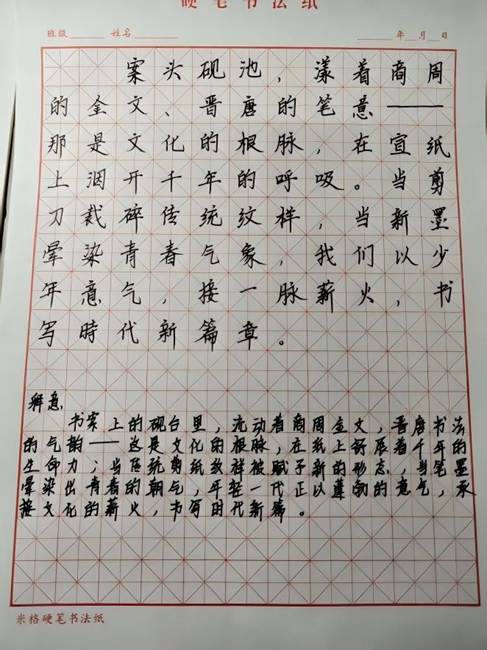 硬笔书法纸
班级 姓名 年 月 日
案头砚池，漾着商周
的金文、晋唐的笔意——
那是文化的根脉，在宣纸
上洇开千年的呼吸。当剪
刀裁碎传统纹样，当新墨
晕染青春气象，我们以少
年意气，接一脉薪火，书
写時代新篇章。
释意.
书案上的砚台里，流动着商周金文，晋唐书法
的气韵——这是文化的根脉，在纸上舒展着千年的
生命力；当传统剪纸纹样被赋予新的形态，当笔墨
晕染出青春的朝气，年轻一代正以蓬勃的意气，承
接文化的薪火，书写时代新篇。
米格硬笔书法纸